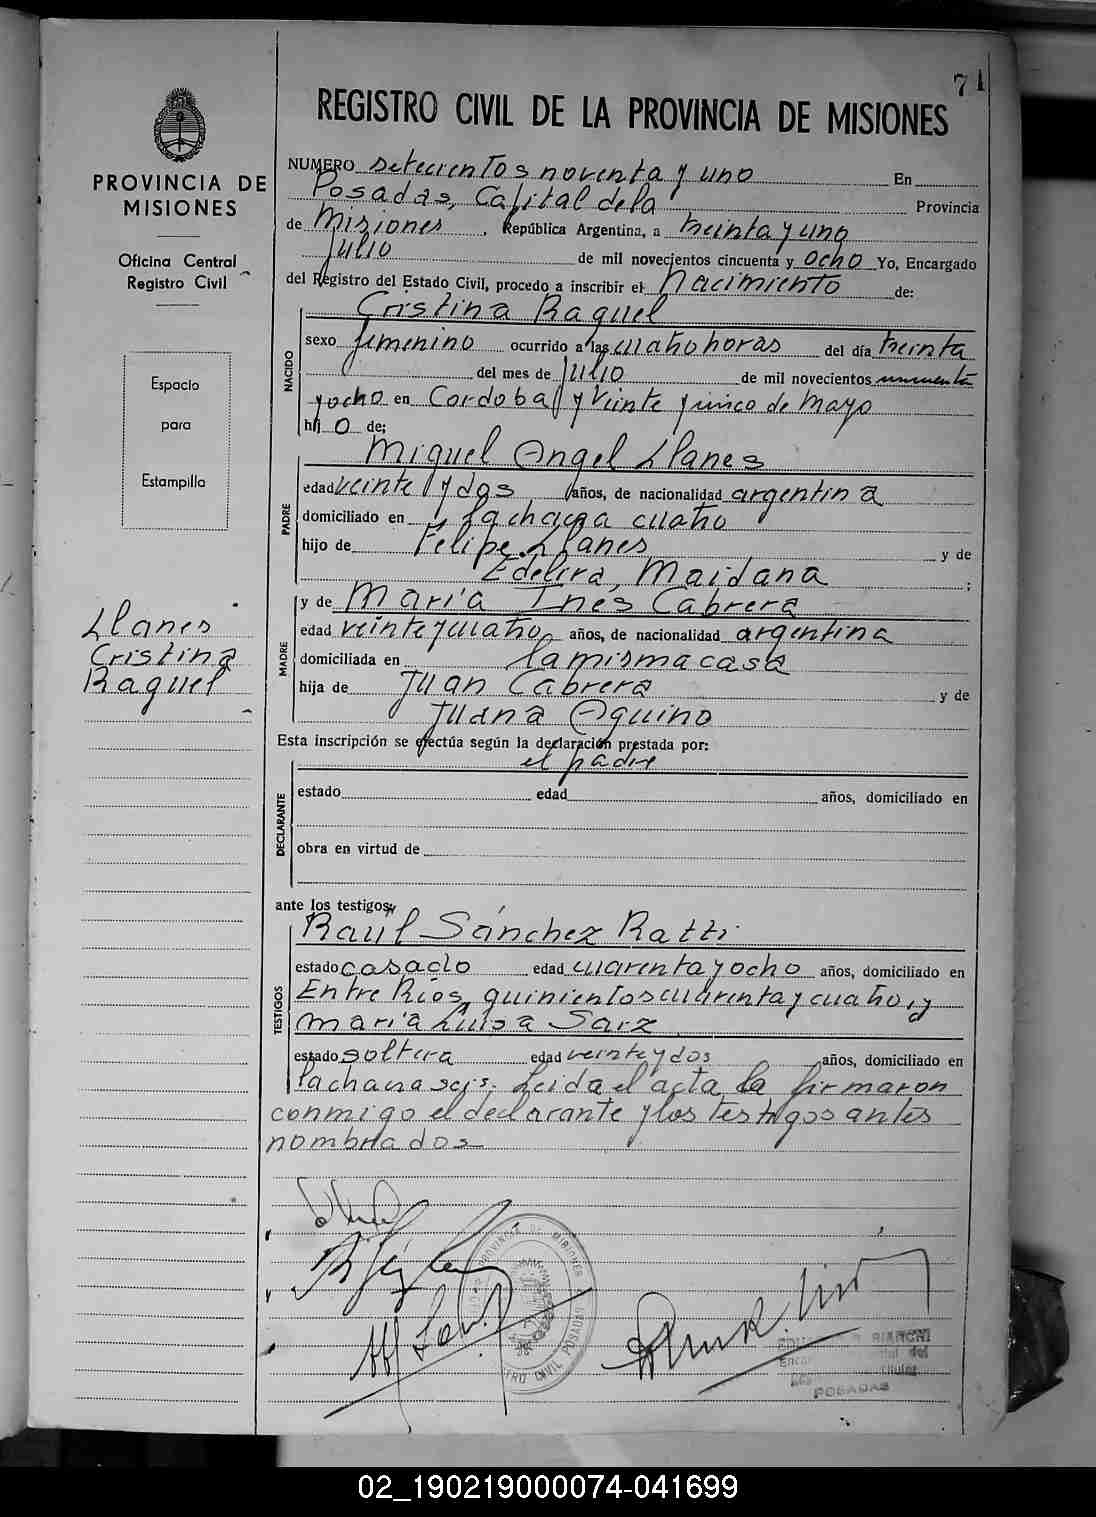 71
REGISTRO CIVIL DE LA PROVINCIA DE MISIONES
PROVINCIA DE
MISIONES
Oficina Central
Registro Civil
Espacio
para
Estampilla
Llanes
Cristina
Raquel
NUMERO setecientos noventa y uno En
Posadas, Capital de la Provincia
de Misiones, República Argentina, a treinta y uno
Julio de mil novecientos cincuenta y ocho Yo, Encargado
del Registro del Estado Civil, procedo a inscribir el nacimiento de:
Cristina Raquel
NACIDO
sexo femenino ocurrido a las cuatro horas del día treinta
del mes de Julio de mil novecientos cincuenta
y ocho en Cordoba y veinte y cinco de Mayo
hijo de:
Miguel Angel Llanes
PADRE
edad veinte y dos años, de nacionalidad argentina
domiciliado en la chacra cuatro
hijo de Felipe Llanes y de
Edelira Maidana ;
y de María Inés Cabrera
MADRE
edad veinte y cuatro años, de nacionalidad argentina
domiciliada en la misma casa
hija de Juan Cabrera y de
Juana Aquino
Esta inscripción se efectúa según la declaración prestada por:
el padre
DECLARANTE
estado edad años, domiciliado en
obra en virtud de
ante los testigos
Raúl Sánchez Ratti
TESTIGOS
estado casado edad cuarenta y ocho años, domiciliado en
Entre Ríos, quinientos cuarenta y cuatro, y
María Luisa Saiz
estado soltera edad veinte y dos años, domiciliado en
la chacra seis. Leida el acta, la firmaron
conmigo el declarante y los testigos antes
nombrados
PROVINCIA DE MISIONES
REGISTRO CIVIL POSADAS
BIANCHI
POSADAS
02_190219000074-041699